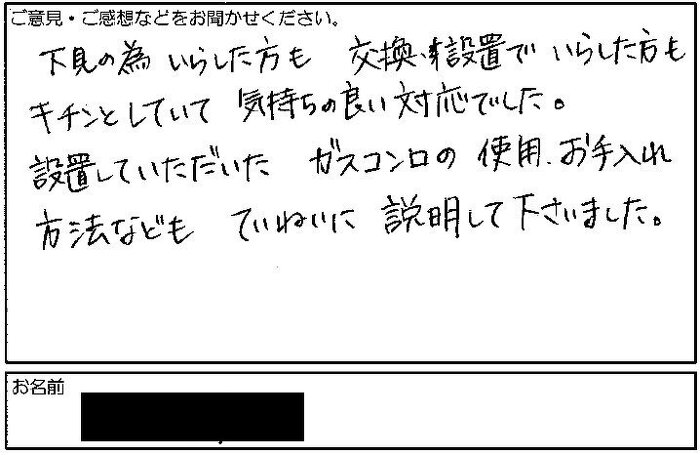 ご意見・ご感想などをお聞かせください。
下見の為 いらした方も 交換・設置で いらした方も
キチンとしていて 気持ちの良い対応でした。
設置していただいた ガスコンロの 使用、お手入れ
方法なども ていねいに 説明して下さいました。
お名前